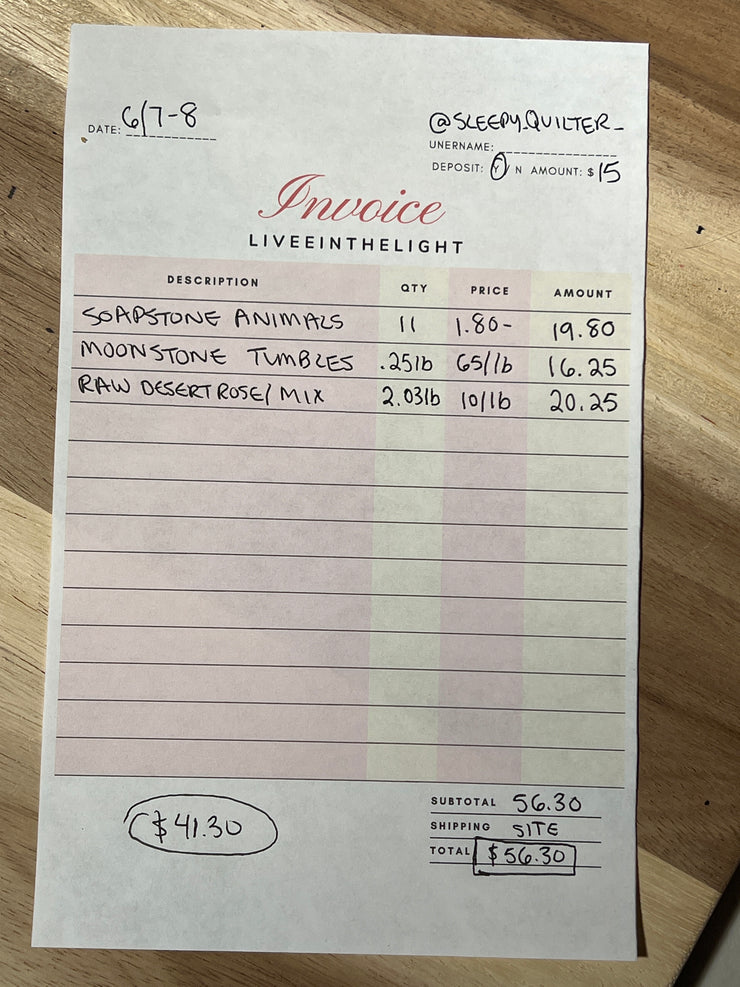 DATE: 6/7-8
@SLEEPY_QUILTER_
UNERNAME:
DEPOSIT: Y N AMOUNT: $15
Invoice
LIVEEINTHELIGHT
DESCRIPTION QTY PRICE AMOUNT
SOAPSTONE ANIMALS 11 1.80- 19.80
MOONSTONE TUMBLES .25lb 65/lb 16.25
RAW DESERT ROSE/ MIX 2.03lb 10/lb 20.25
SUBTOTAL 56.30
$41.30
SHIPPING SITE
TOTAL $56.30